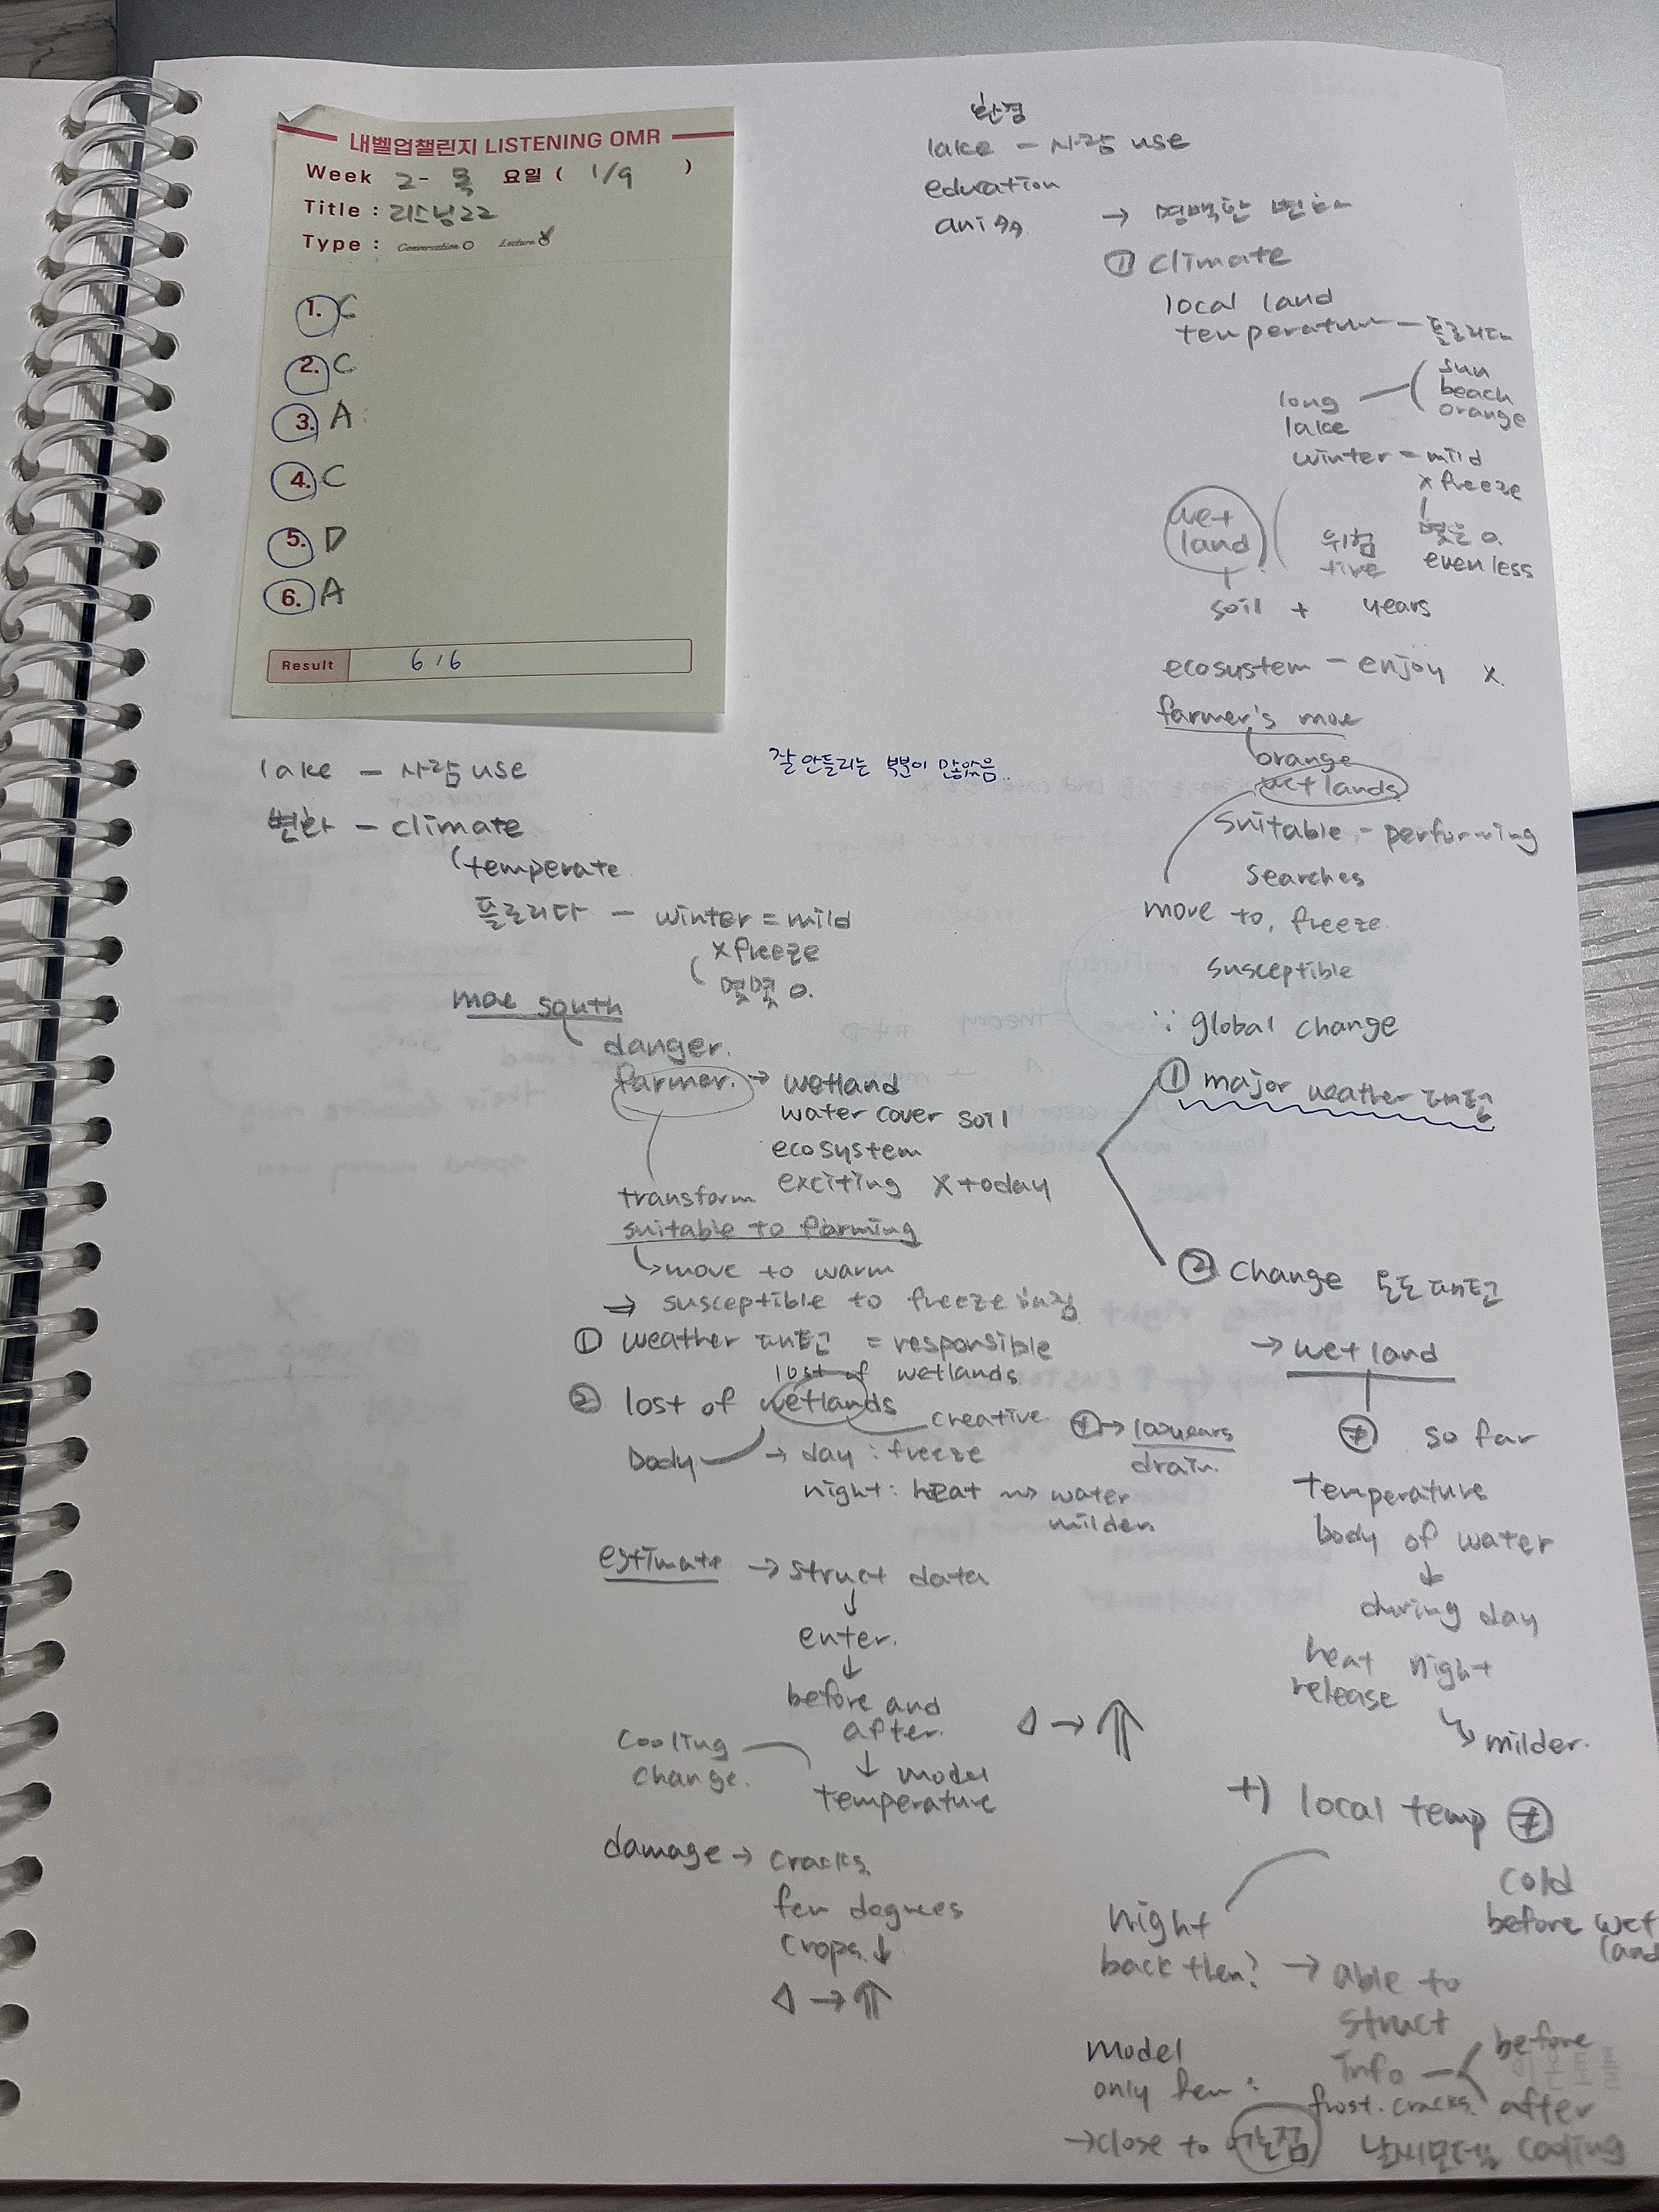 내벨업챌린지 LISTENING OMR
Week 2- 목 요일 ( 1/9 )
Title : 리스닝22
Type : Conversation Lecture
1. C
2. C
3. A
4. C
5. D
6. A
Result 6/6
lake - 사람 use
변화 - climate
temperate
플로리다 - winter = mild
x freeze
몇몇 o.
moe south
danger.
farmer. → wetland
water cover soil
ecosystem
exciting x today
transform
suitable to farming
→ move to warm
⇒ susceptible to freeze
① weather 패턴 = responsible
lost of wetlands
② lost of wetlands
creative
→ 100years
drain.
body → day : freeze
night : heat → water
milder
estimate → struct data
↓
enter.
↓
before and
after.
↓ model
temperature
cooling
change.
damage → cracks
few degrees
crops ↓
△ → ⇑
잘 안들리는 부분이 많았음..
환경
lake - 사람 use
education
→ 명백한 변화
① climate
local land
temperature - 플로리다
sun
beach
orange
long
lake
winter = mild
x freeze
몇은 o.
even less
wet
land
위험
soil + years
ecosystem - enjoy x.
farmer's moe
orange
wetlands
suitable - performing
searches
move to, freeze.
susceptible
∵ global change
① major weather 패턴
② change 온도패턴
→ wetland
so far
temperature
body of water
↓
during day
heat night
release
milder.
△ → ⇑
+) local temp
cold
before wet
land
night
back then? → able to
struct
info
before
after
model
only few :
frost. cracks.
→ close to
날씨모델 cooling